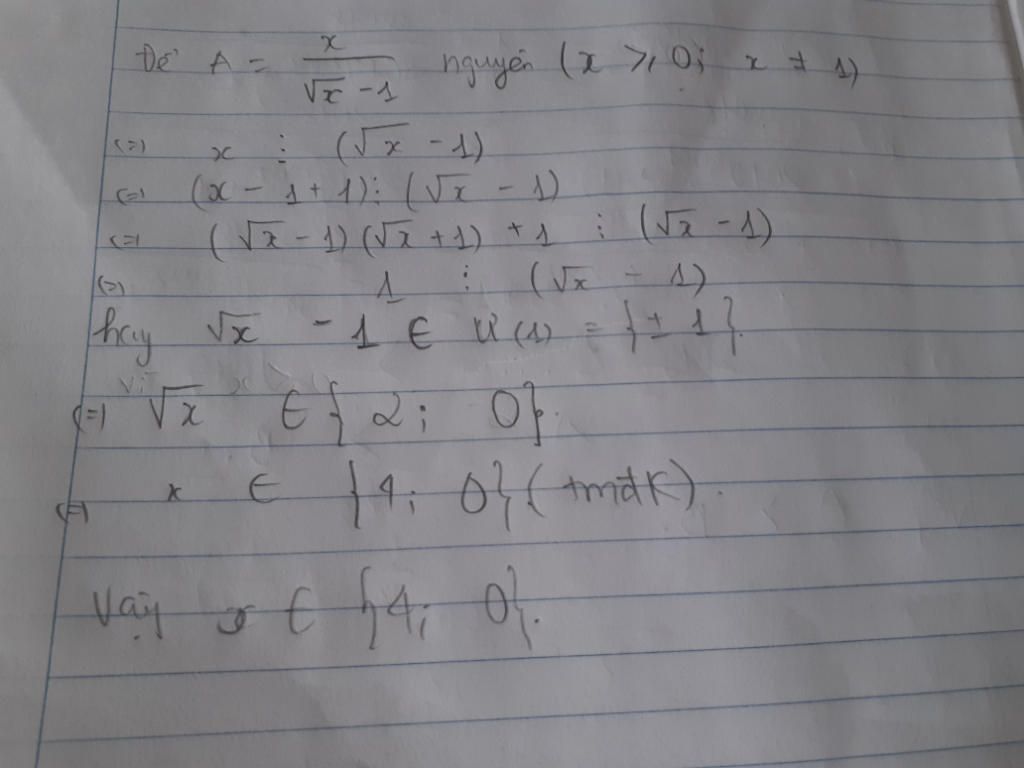 Để A = x / (√x - 1) nguyên (x ≥ 0; x ≠ 1)
(=) x ⋮ (√x - 1)
(=) (x - 1 + 1) ⋮ (√x - 1)
(=) (√x - 1)(√x + 1) + 1 ⋮ (√x - 1)
(=) 1 ⋮ (√x - 1)
hay √x - 1 ∈ Ư(1) = {± 1}.
(=) √x ∈ {2; 0}.
(=) x ∈ {4; 0} (tmđk).
Vậy x ∈ {4; 0}.